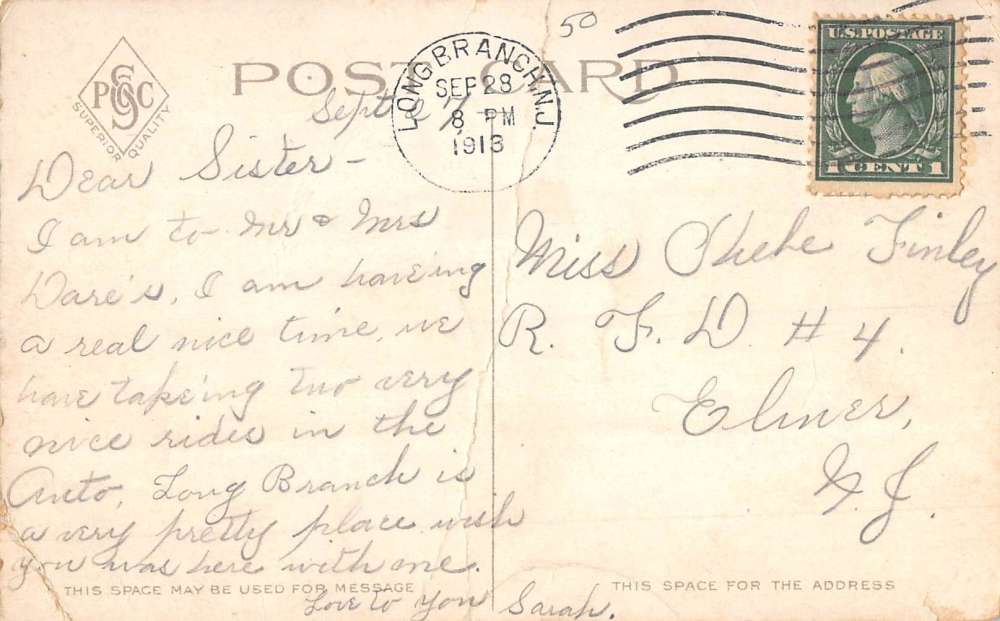 50
POST CARD
PGSC
SUPERIOR QUALITY
LONG BRANCH, N.J.
SEP 28
8 PM
1913
U.S. POSTAGE
1 CENT 1
Sept
Dear Sister -
I am to Mr & Mrs
Dare's. I am haveing
a real nice time, we
have takeing two very
nice rides in the
Auto, Long Branch is
a very pretty place wish
you was here with me.
Love to you Sarah.
Miss Phebe Finley
R. F. D # 4.
Elmer,
N. J.
THIS SPACE MAY BE USED FOR MESSAGE
THIS SPACE FOR THE ADDRESS